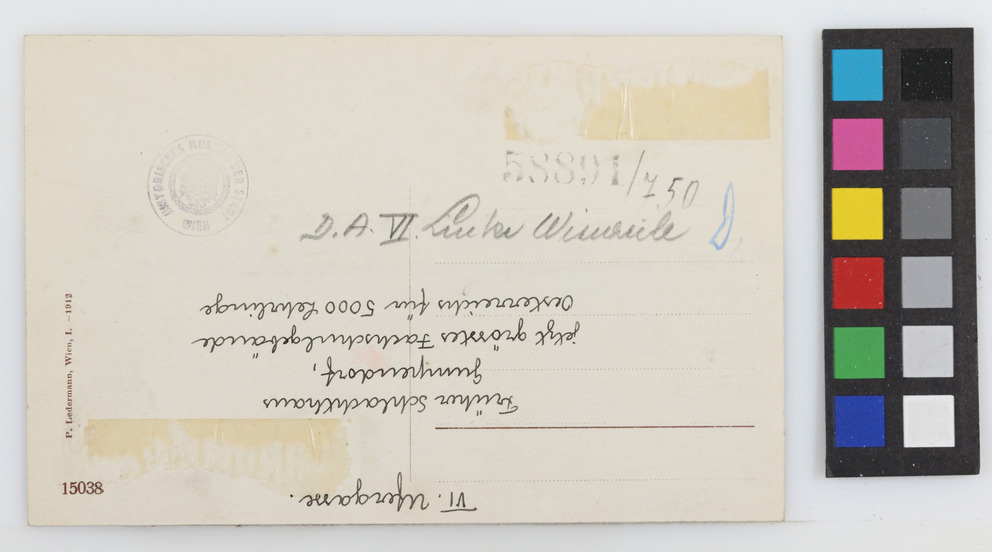 HISTORISCHES MUSEUM DER STADT WIEN
58891/750
D. A. VI. Linke Wienzeile
P. Ledermann, Wien, I. – 1912
15038
VI. Ufergasse.
Früher Schlachthaus
Gumpendorf,
jetzt grösstes Fachschulgebäude
Oesterreichs für 5000 Lehrlinge